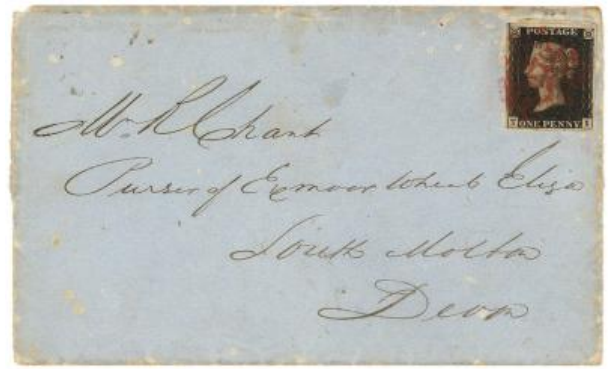 POSTAGE
ONE PENNY
Mr R Chant
Purser of Exmoor Wheal Eliza
South Molton
Devon